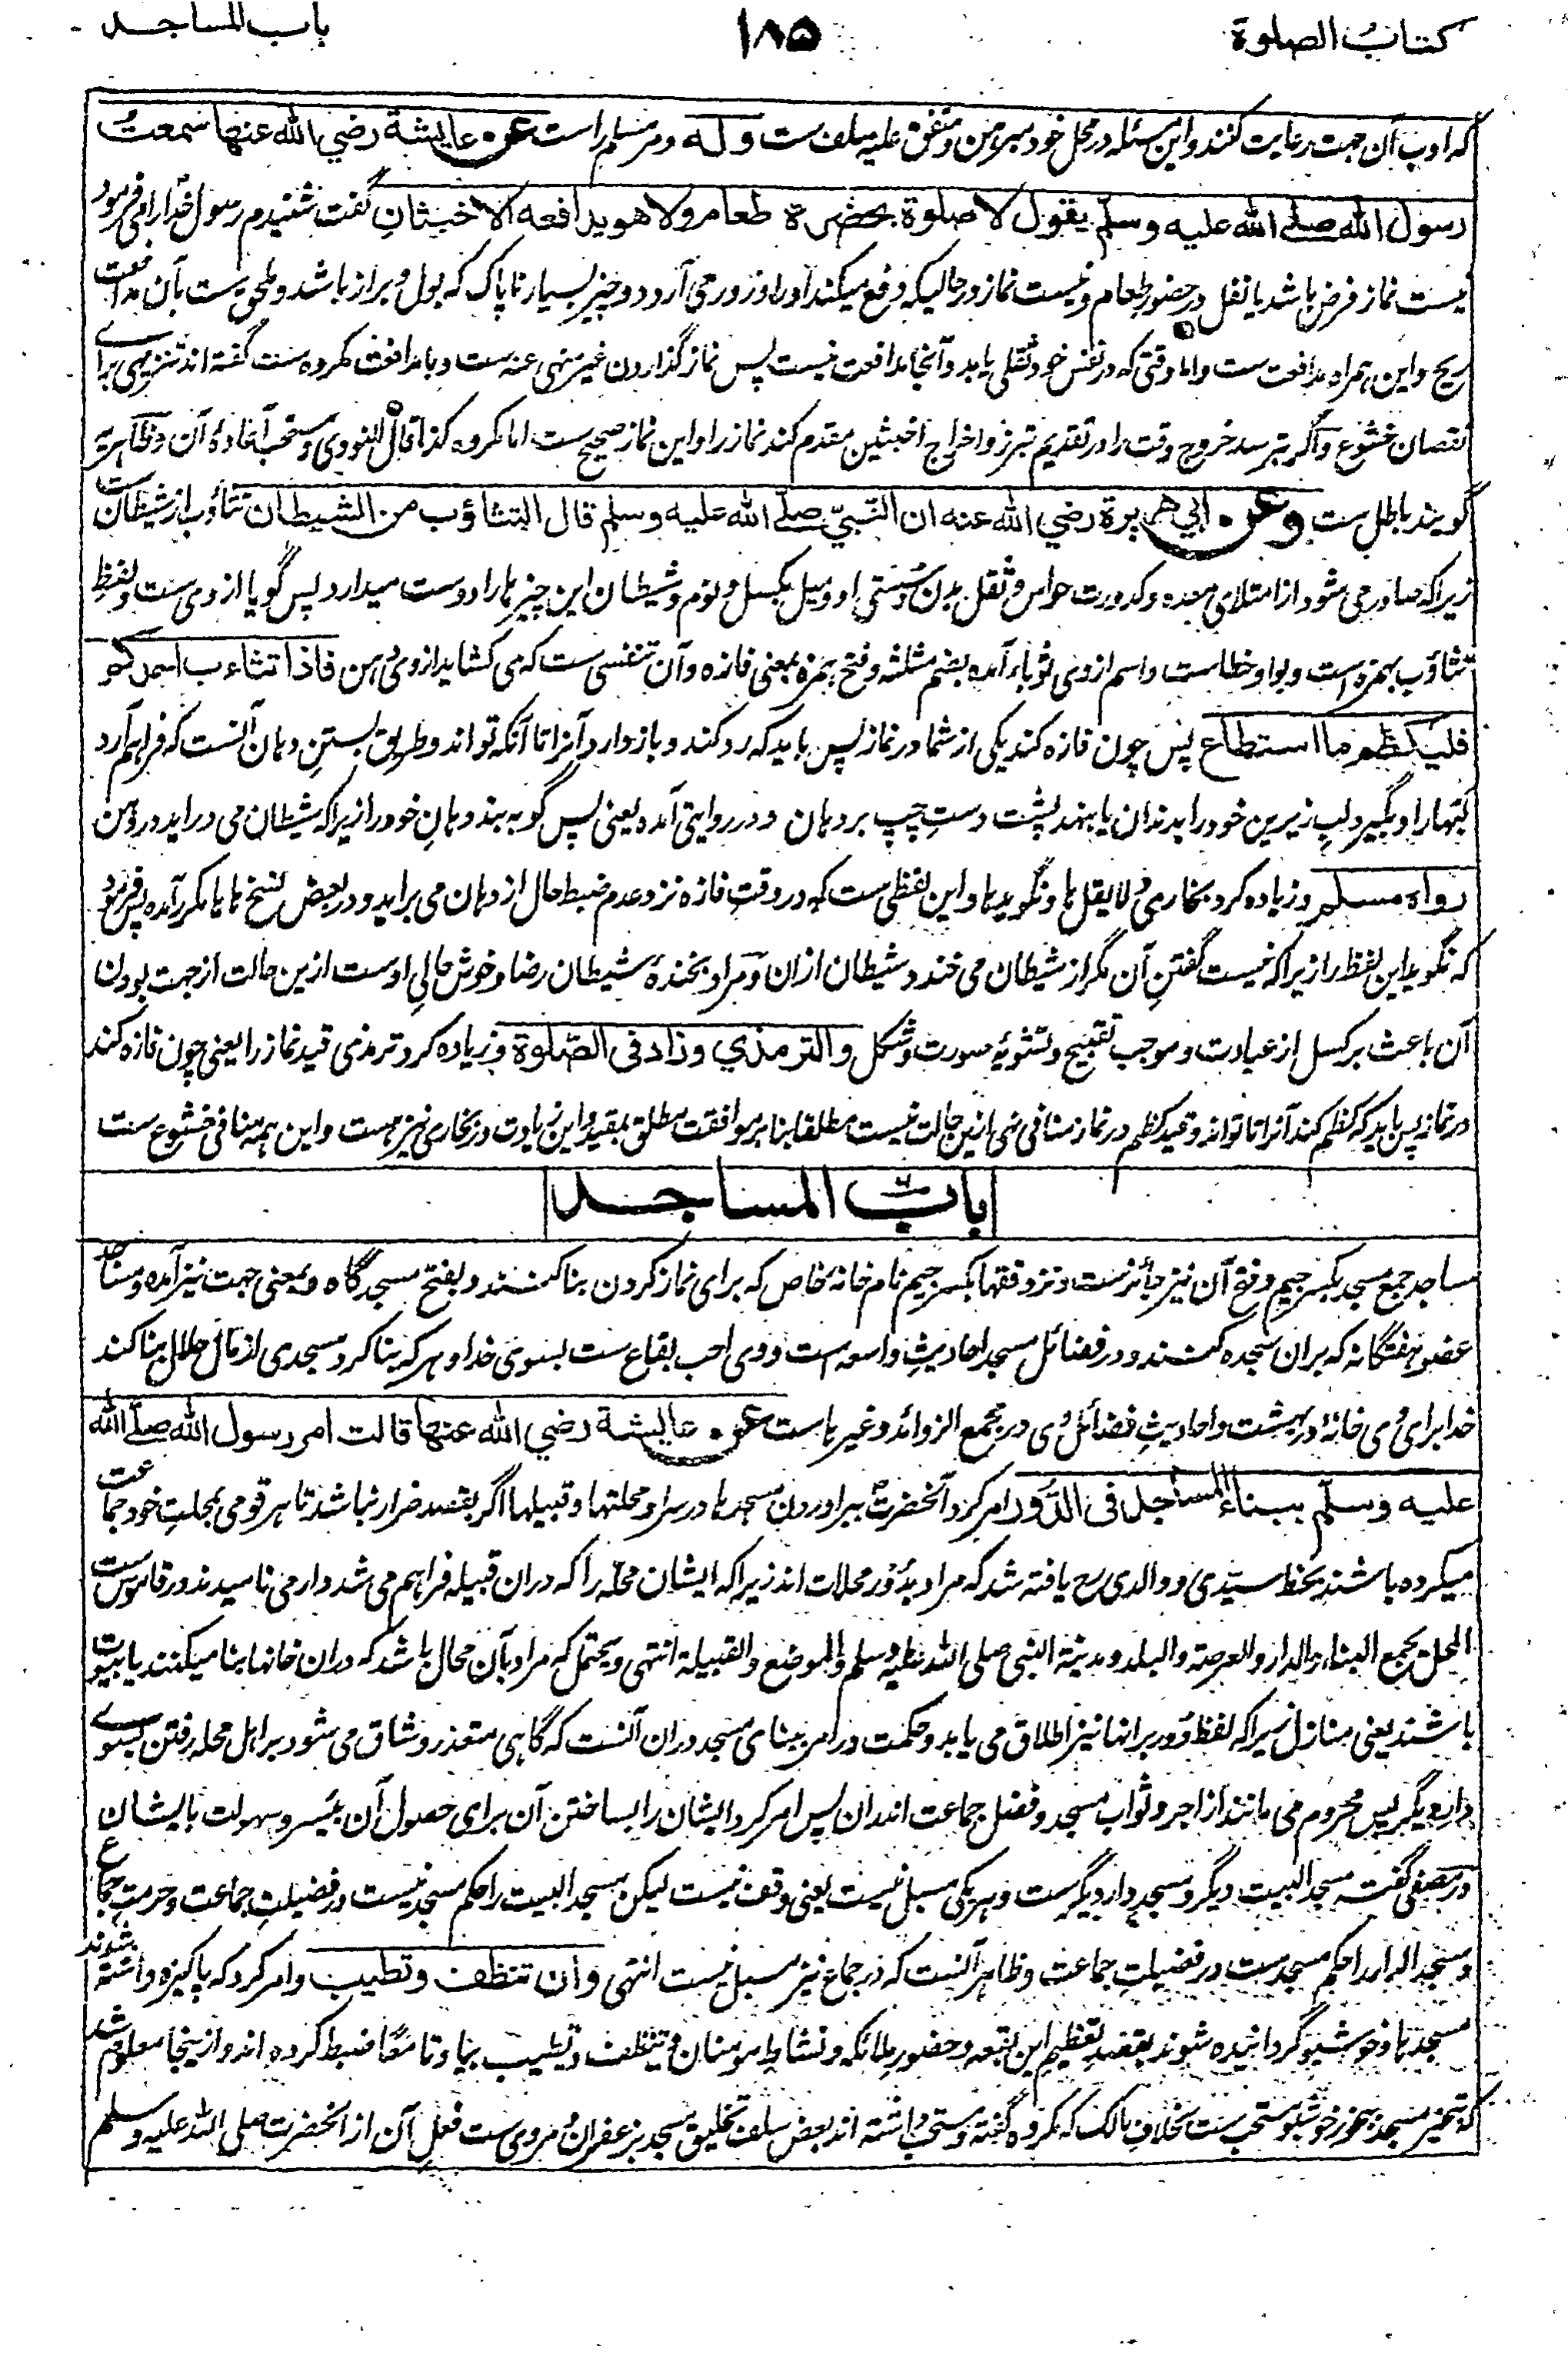 كتاب الصلوة
١٨۵
باب المساجد
که ادب آن جهت رعایت کنند و این مسئله در محل خود مبرهن و متفق علیه سلف ست وله و مر مسلم راست عن عايشة رضي الله عنها سمعت
رسول الله صلى الله عليه وسلم يقول لا صلوة بحضرة طعام ولا هو يدافعه الاخبثان گفت شنیدم رسول خدا را می فرمود
نیست نماز فرض باشد یا نفل در حضور طعام و نیست نماز در حالیکه دفع میکند او را و زور می آرد دو چیز بسیار ناپاک که بول و براز باشد و ملحق ست بآن مدافعت
ریح و این همراه مدافعت ست و اما وقتی که در نفس خود ثقلی یابد و آنجا مدافعت نیست پس نماز گذاردن غیر منهی عنه ست و با مدافعت مکروه ست گفته اند تنزیهی برای
نقصان خشوع و اگر بترسد خروج وقت را در تقدیم تبرز و اخراج اخبثین مقدم کند نماز را و این نماز صحیح ست اما مکروه کذا قال النووی و مستحب اعادهٔ آن و ظاهریه
گویند باطل ست وعن ابي هريرة رضي الله عنه ان النبي صلى الله عليه وسلم قال التثاؤب من الشيطان تثاؤب از شیطان ست
زیرا که صادر می شود از امتلای معده و کدورت حواس و ثقل بدن و سستی او و میل بکسل و نوم و شیطان این چیزها را دوست میدارد پس گویا از وی ست و لفظ
تثاؤب بهمزه است و بواو خطاست و اسم از وی ثوباء آمده بضم مثلثه و فتح همزه بمعنی فازه و آن تنفسی ست که می کشاید از وی دهن فاذا تثاءب احدكم
فليكظم ما استطاع پس چون فازه کند یکی از شما در نماز پس باید که رد کند و باز دارد آنرا تا آنکه تواند و طریق بستن دهان آنست که فراهم آرد
لبها را و بگیرد لب زیرین خود را بدندان یا بنهد پشت دست چپ بر دهان و در روایتی آمده یعنی پس گو به بند دهان خود را زیرا که شیطان می دراید در دهن
رواه مسلم و زیاده کرد بخاری و لا یقل ها و نگوید ها و این لفظی ست که در وقت فازه نزد عدم ضبط حال از دهان می براید و در بعض نسخ ها ها مکرر آمده پس فرمود
که نگوید این لفظ را زیرا که نیست گفتن آن مگر از شیطان می خندد شیطان ازان و مراد بخندهٔ شیطان رضا و خوش حالی اوست ازین حالت از جهت بودن
آن باعث بر کسل از عبادت و موجب تقبیح و تشویه صورت و شکل والترمذي وزاد في الصلوة و زیاده کرد ترمذی قید نماز را یعنی چون فازه کند
در نماز پس باید که کظم کند آنرا تا تواند و قید کظم در نماز منافی نهی ازین حالت نیست مطلقا بنابر موافقت مطلق بمقید و این زیادت در بخاری نیز هست و این همه منافی خشوع ست
باب المساجد
مساجد جمع مسجد بکسر جیم و فتح آن نیز جائز ست و نزد فقها بکسر جیم نام خانهٔ خاص که برای نماز کردن بنا کنند و بفتح مسجدگاه و بمعنی جهت نیز آمده و مساجد
عضو هفتگانه که بران سجده کنند و در فضائل مسجد احادیث واسعه است و وی احب بقاع ست بسوی خدا و هر که بنا کرد مسجدی از مال حلال بنا کند
خدا برای وی خانهٔ در بهشت و احادیث فضائل وی در مجمع الزوائد و غیرهاست عن عايشة رضي الله عنها قالت امر رسول الله صلى الله
عليه وسلم ببناء المساجد في الدور امر کرد آنحضرت ببراوردن مسجدها در سرا و محلتها و قبیلها اگر بقصد ضرار نباشد تا هر قومی بمحلت خود جماعت
میکرده باشند بخط سیدی و والدی رح یافته شد که مراد بدور محلات اند زیرا که ایشان محله را که دران قبیله فراهم می شد دار می نامیدند و در قاموس ست
المحل یجمع البناء والدار والعرصة والبلد ومدینة النبی صلی الله علیه وسلم والموضع والقبیلة انتهی و یحتمل که مراد بآن محال باشد که دران خانها بنا میکنند یا بیوت
باشند یعنی منازل زیرا که لفظ دور برانها نیز اطلاق می یابد و حکمت در امر ببنای مسجد دران آنست که گاهی متعذر و شاق می شود بر اهل محله رفتن بسوی
دار دیگر پس محروم می مانند از اجر و ثواب مسجد و فضل جماعت اندران پس امر کرد ایشان را بساختن آن برای حصول آن بیسر و سهولت بایشان
در مصفی گفته مسجد البیت دیگر و مسجد دار دیگرست و هر یکی مسبل نیست یعنی وقف نیست لیکن مسجد البیت را حکم مسجد نیست در فضیلت جماعت و حرمت جماع
و مسجد الدار را حکم مسجد ست در فضیلت جماعت و ظاهر آنست که در جماع نیز مسبل نیست انتهی وان تنظف وتطيب و امر کرد که پاکیزه داشته شوند
مسجدها و خوشبو گردانیده شوند بقصد تعظیم این بقعه و حضور ملائکه و نشاط مومنان و تنظف و تطیب بیا و تا معًا ضبط کرده اند و ازینجا معلوم شد
که تجمیر مسجد ببخور خوشبو مستحب ست بخلاف مالک که مکروه گفته و مستحب داشته اند بعض سلف تخلیق مسجد بزعفران و مروی ست فعل آن از آنحضرت صلی الله علیه وسلم